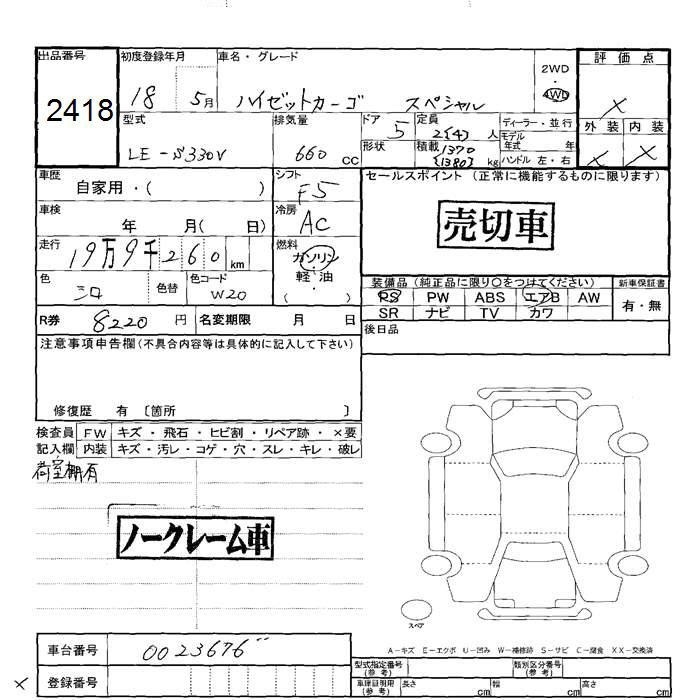 出品番号 初度登録年月 車名・グレード
2418 18 5月 ハイゼットカーゴ スペシャル
2WD
4WD
評価点
×
型式 排気量 ドア 定員 ディーラー・並行
LE-S330V 660 cc 5 2(4)人
モデル年式 年
形状 積載 1370 (1380) kg ハンドル 左・右
外装 内装
× ×
車歴 自家用・( )
シフト F5
セールスポイント (正常に機能するものに限ります)
売切車
車検 年 月( 日)
冷房 AC
走行 19万9千260km
燃料 ガソリン 軽・油 ( )
色 シロ 色替 色コード W20
装備品 (純正品に限り○をつけてください) 新車保証書
PS PW ABS エアB AW 有・無
SR ナビ TV カワ
R券 8220 円 名変期限 月 日
後日品
注意事項申告欄(不具合内容等は具体的に記入して下さい)
修復歴 有 〔箇所 〕
検査員 FW キズ・飛石・ヒビ割・リペア跡・×要
記入欄 内装 キズ・汚レ・コゲ・穴・スレ・キレ・破レ
荷室棚有
ノークレーム車
スペア
A-キズ E-エクボ U-凹み W-補修跡 S-サビ C-腐食 XX-交換済
車台番号 0023676
型式指定番号(参考) 類別区分番号(参考)
× 登録番号
車庫証明用(参考) 長さ cm 幅 cm 高さ cm